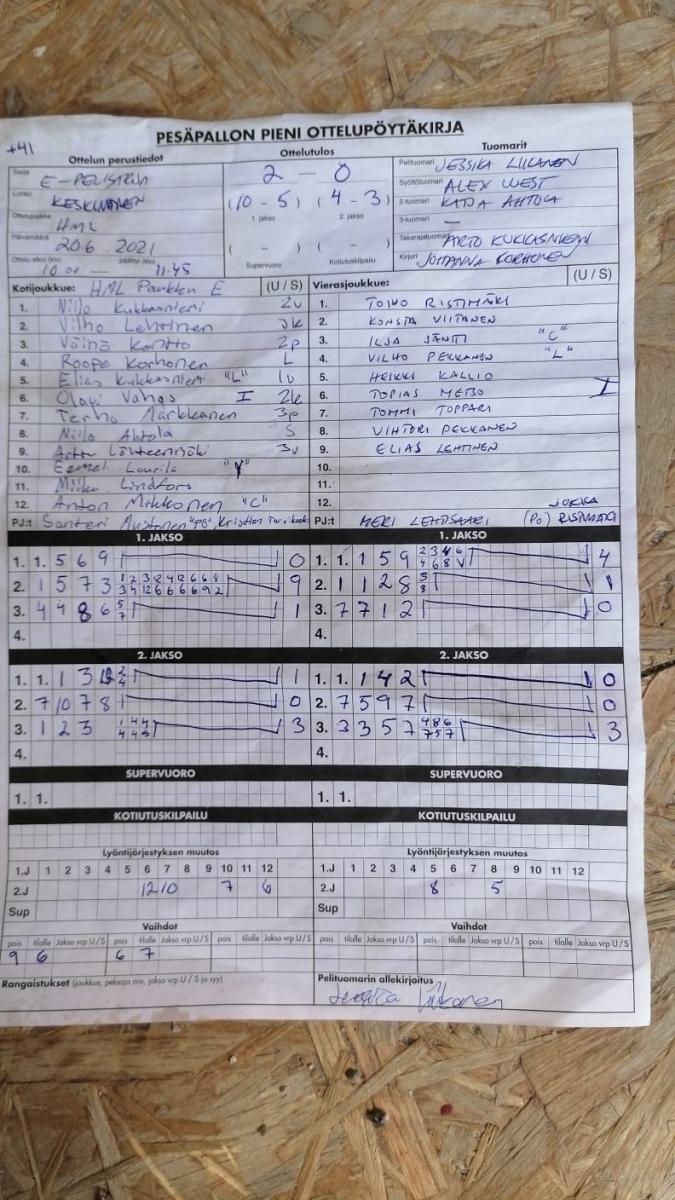 PESÄPALLON PIENI OTTELUPÖYTÄKIRJA
+41
Ottelun perustiedot Ottelutulos Tuomarit
Sarja 2 - 0 Pelituomari JESSIKA LIIKANEN
Lohko KESKINÄINEN (10 - 5) (4 - 3) Syöttötuomari ALEX WEST
1. jakso 2. jakso 2-tuomari KATJA AHTOLA
Ottelupaikka HML 3-tuomari —
Päivämäärä 20.6 2021 ( - ) ( - ) Takarajatuomari ARTO KUKKASNIEMI
Ottelu alkoi (klo) 10.00 — päättyi (klo) 11.45 Supervuoro Kotiutuskilpailu Kirjuri JOHANNA KORHONEN
Kotijoukkue: HML Pankku E (U / S) Vierasjoukkue: (U / S)
1. Niilo Kukkasniemi 2v 1. TOIVO RISTIMÄKI
2. Vilho Lehtinen 2. KONSTA VIITANEN
3. Väinö Kontto 2p 3. ILJA JÄNTTI "C"
4. Roope Korhonen L 4. VILHO PEKKANEN "L"
5. Elias Kukkasniemi "L" 1v 5. HEIKKI KALLIO
6. Olavi I 2k 6. TOPIAS METSO I
7. Terho Markkanen 3p 7. TOMMI TOPPARI
8. Niilo Ahtola S 8. VIHTORI PEKKANEN
9. Arttu Lähteenmäki 3v 9. ELIAS LEHTINEN
10. Eemel Laurila 10.
11. Miika Lindfors 11.
12. Anton Mikkonen "C" 12. JUKKA
PJ:t Santeri Mustonen "PJ", Kristian PJ:t MERI LEHTISAARI (PJ) RISTIMÄKI
1. JAKSO 1. JAKSO
1. 1. 5 6 9 0 1. 1. 1 5 9 2 3 4 6 4
4 6 8 V
2. 1 5 7 3 1 2 3 8 4 12 6 6 8 9 2. 1 1 2 8 5 1
3 4 12 6 6 6 6 9 2 8
3. 4 4 8 6 5 1 3. 7 7 1 2 0
7
4. 4.
2. JAKSO 2. JAKSO
1. 1. 1 3 12 2 1 1. 1. 1 4 2 0
4
2. 7 10 7 8 0 2. 7 5 9 7 0
3. 1 2 3 1 4 4 3 3. 3 3 5 7 4 8 6 3
4 4 5 7 5 7
4. 4.
SUPERVUORO SUPERVUORO
1. 1. 1. 1.
KOTIUTUSKILPAILU KOTIUTUSKILPAILU
Lyöntijärjestyksen muutos Lyöntijärjestyksen muutos
1.J 1 2 3 4 5 6 7 8 9 10 11 12 1.J 1 2 3 4 5 6 7 8 9 10 11 12
2.J 12 10 7 6 2.J 8 5
Sup Sup
Vaihdot Vaihdot
pois tilalle Jakso vrp U / S pois tilalle Jakso vrp U / S pois tilalle Jakso vrp U / S pois tilalle Jakso vrp U / S pois tilalle Jakso vrp U / S pois tilalle Jakso vrp U / S
9 6 6 7
Rangaistukset (joukkue, pelaaja nro, jakso vrp U / S ja syy) Pelituomarin allekirjoitus
Jessika Liikanen